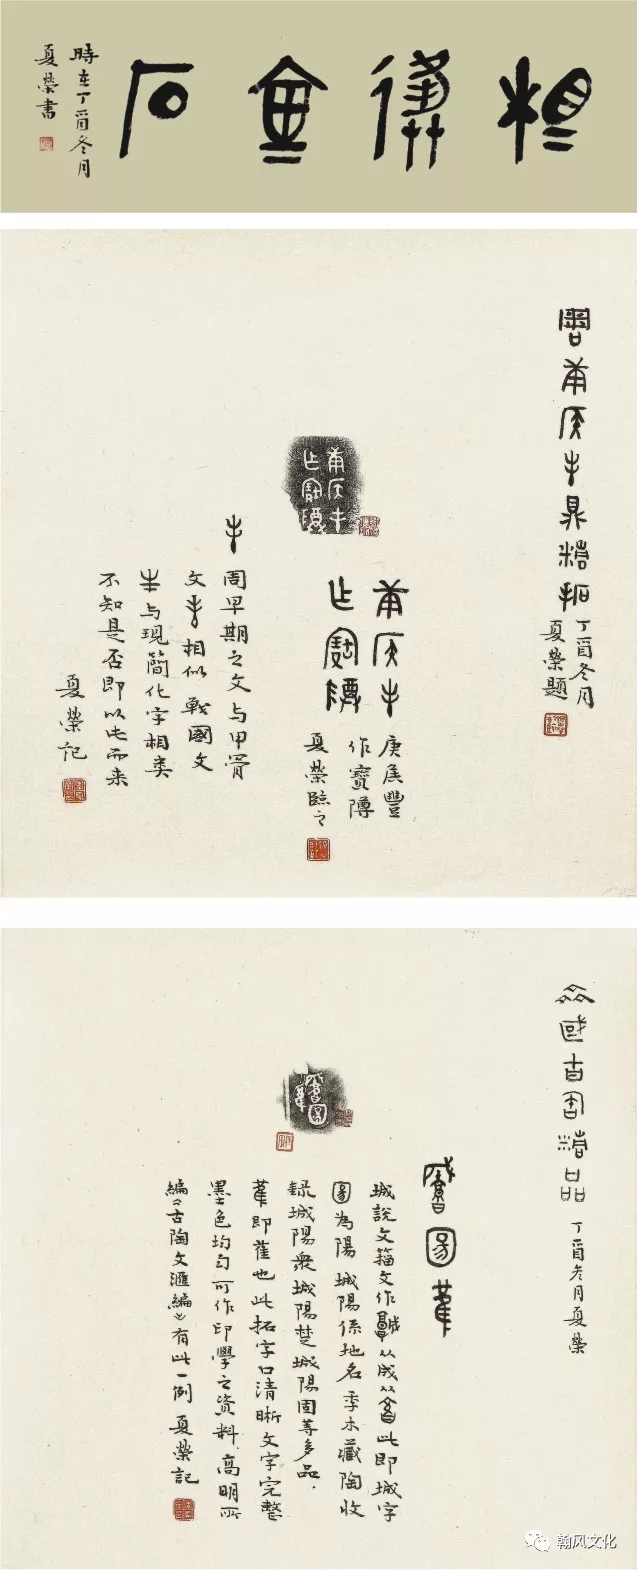 金石
時在丁酉冬月
夏榮書
周庚侯丰鼎精拓
丁酉冬月
夏榮題
庚侯丰
作寶
庚侯丰
作寶
庚侯豐
作寶
夏榮臨之
丰周早期之文与甲骨
文丰相似戰國文
丰与現簡化字相类
不知是否即以此而来
夏榮記
齊國古匋精品
丁酉冬月夏榮
城說文籀文作从成从此即城字
為陽城陽係地名季木藏陶收
録城陽衆城陽楚城陽固等多品，
即雚也此拓字口清晰文字完整
墨色均匀可作印學之資料高明所
編《古陶文滙編》有此一例夏榮記
翰风文化